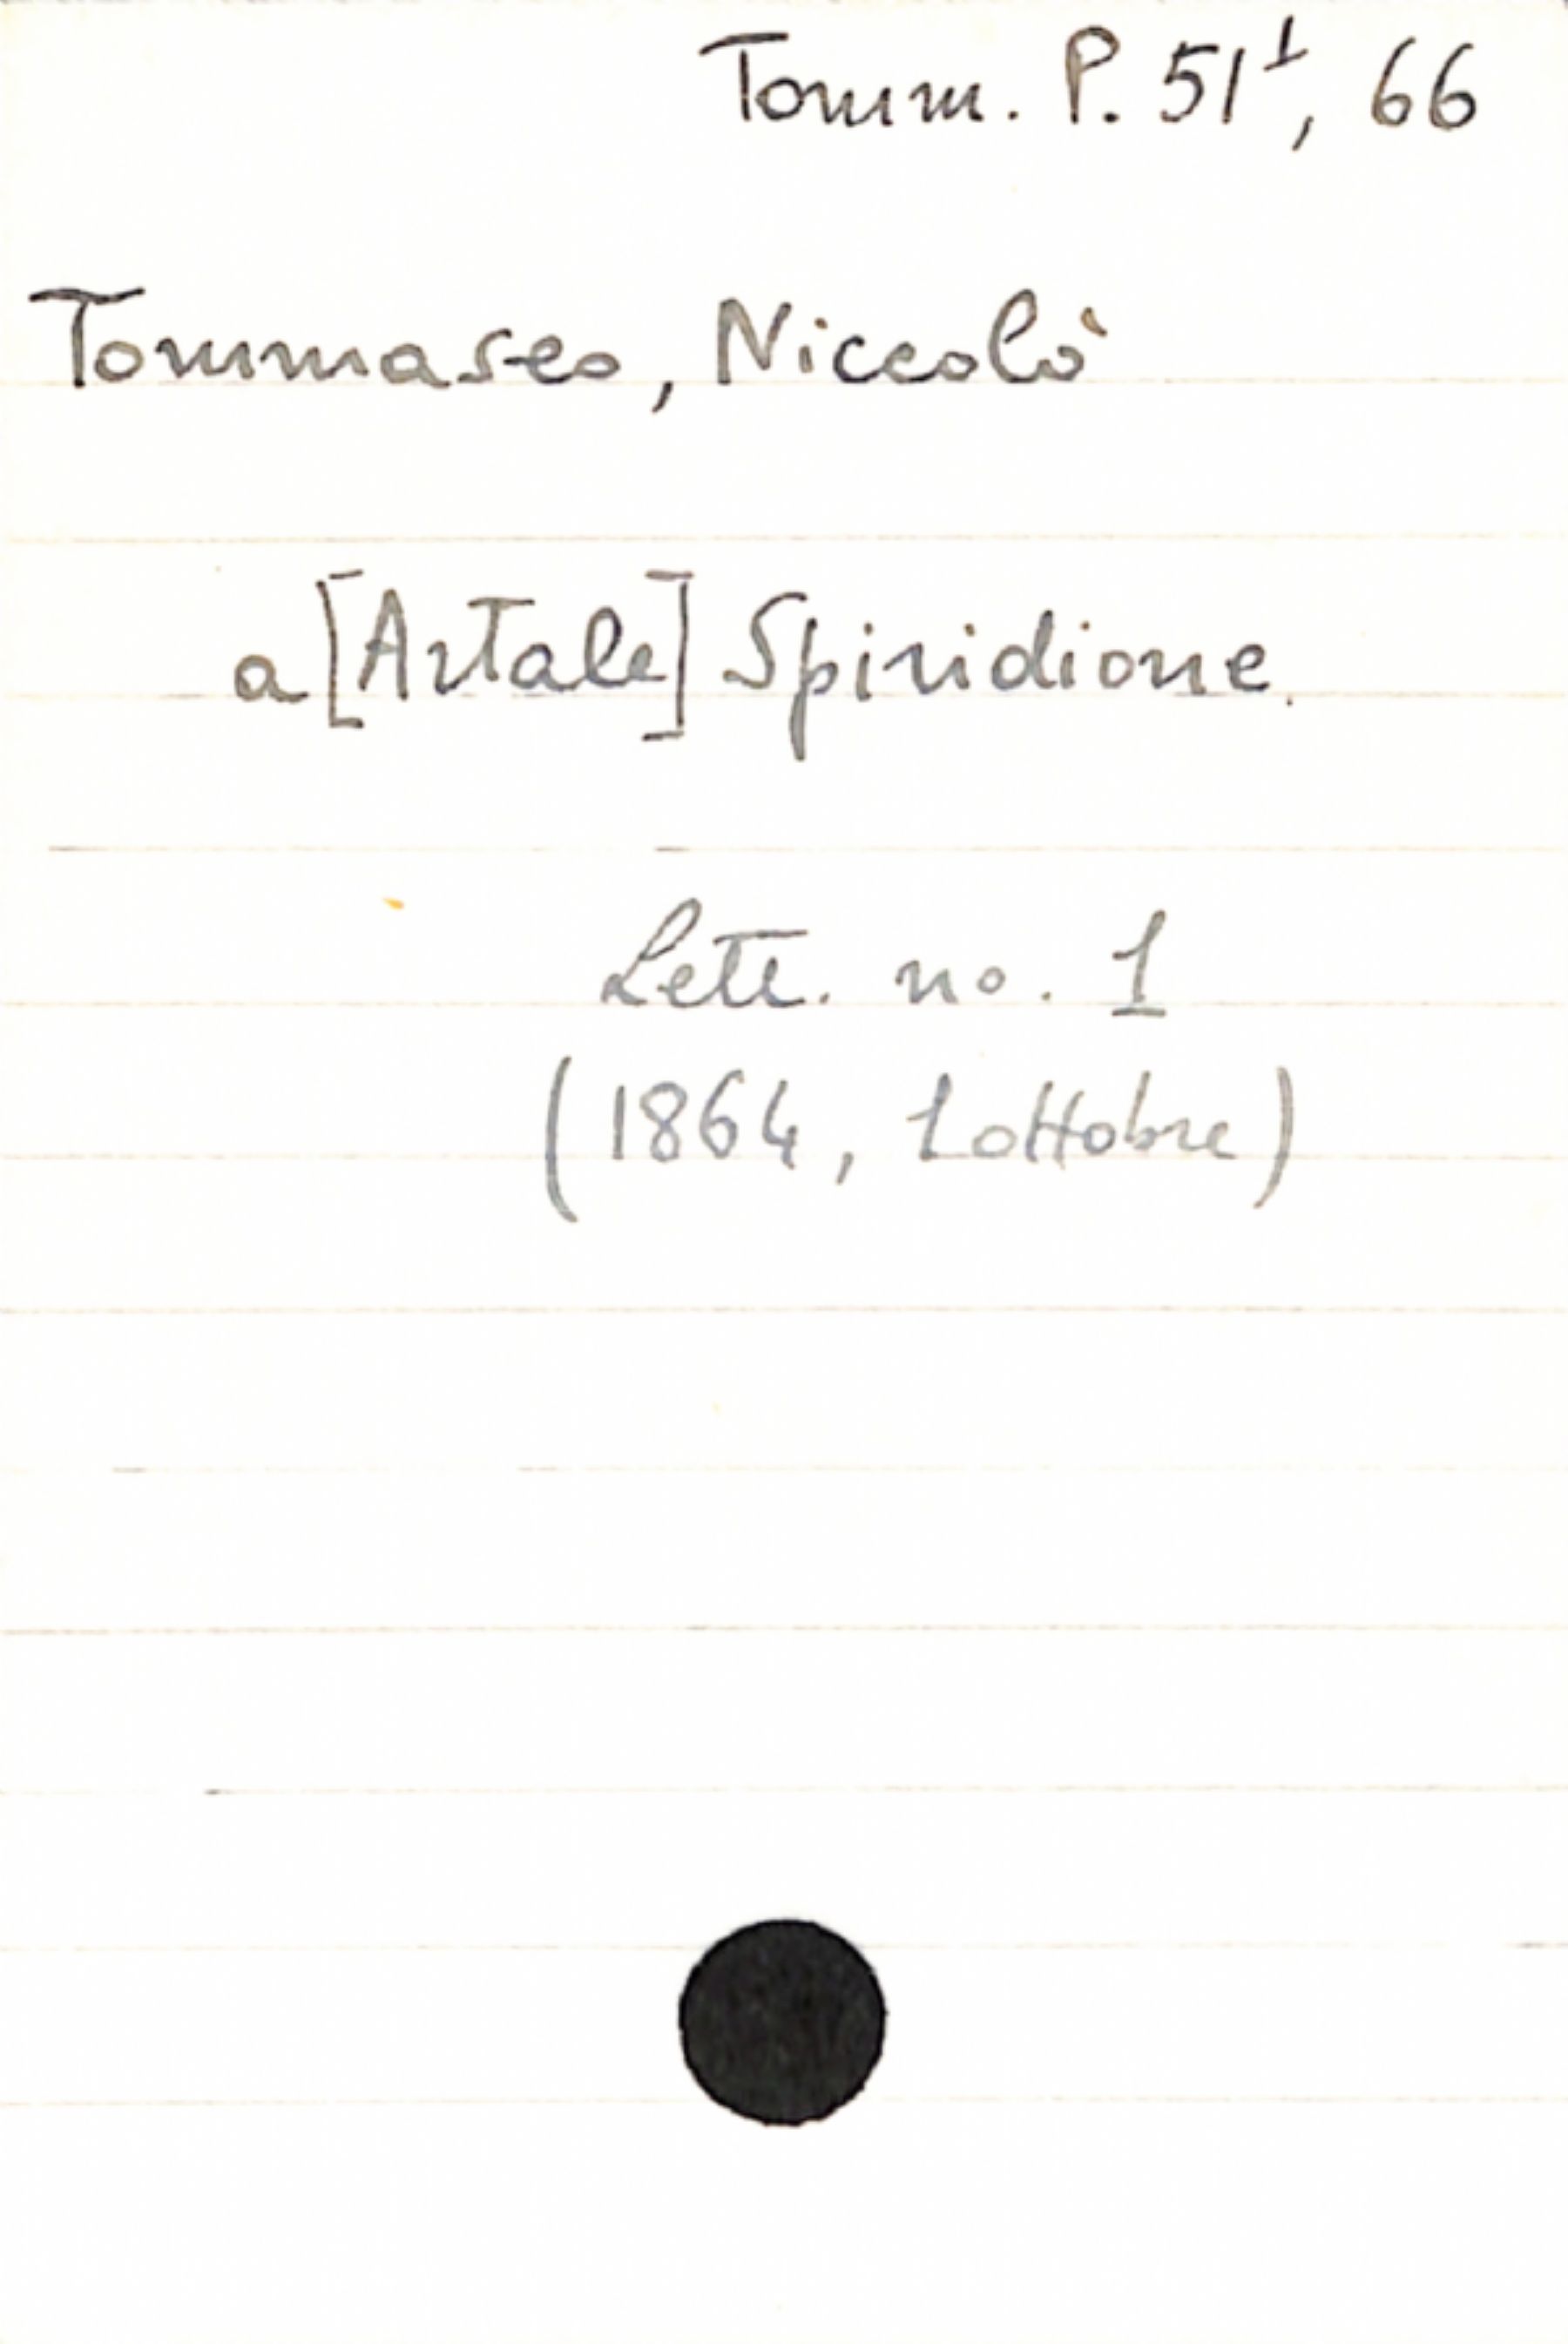 Tomm. P. 51¹, 66
Tommaseo, Niccolò
a [Artale] Spiridione.
Lett. no. 1
(1864, 1 ottobre)